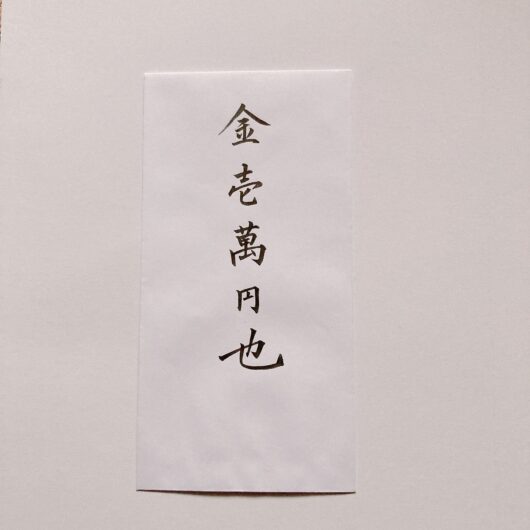 金壱萬円也